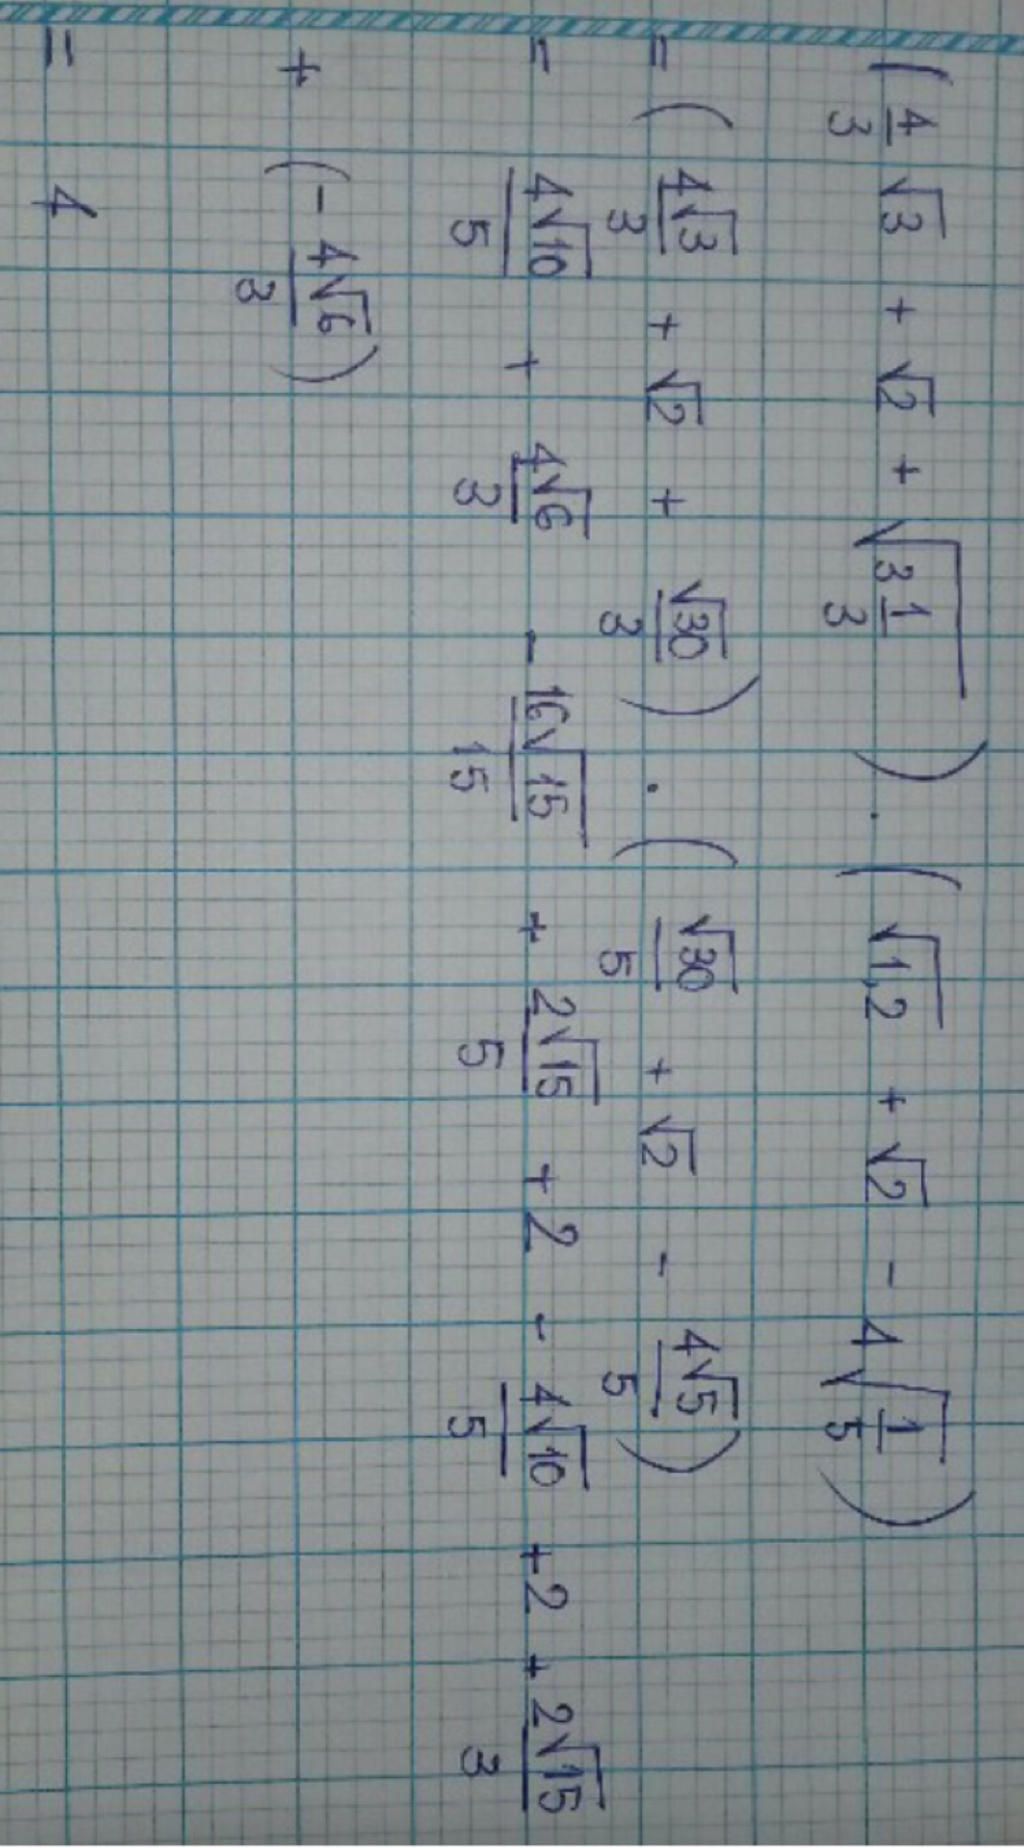 (4/3 √3 + √2 + √(3 1/3)) · (√1,2 + √2 - 4√(1/5))
= (4√3/3 + √2 + √30/3) · (√30/5 + √2 - 4√5/5)
= 4√10/5 + 4√6/3 - 16√15/15 + 2√15/5 + 2 - 4√10/5 + 2 + 2√15/3
+ (- 4√6/3)
= 4